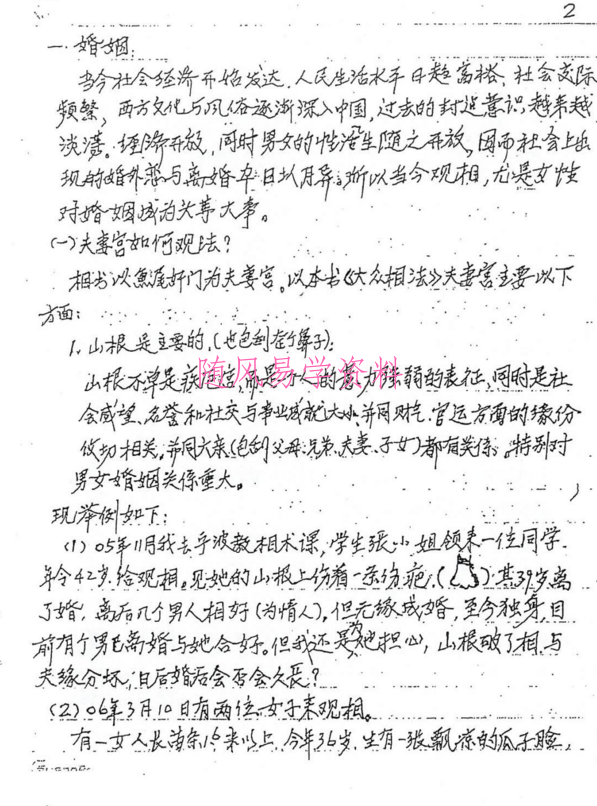 2
一、婚姻:
当今社会经济开始发达，人民生活水平日趋富裕、社会交际
频繁，西方文化与风俗逐渐深入中国，过去的封建意识越来越
淡薄。经济开放，同时男女的性活生随之开放，因而社会上出
现的婚外恋与离婚率日以月异。所以当今观相，尤是女性
对婚姻成为头等大事。
(一)夫妻宫如何观法?
相书以鱼尾奸门为夫妻宫。以本书《大众相法》夫妻宫主要以下
方面:
1. 山根是主要的,(也包到整个鼻子);
随风易学资料
山根不单是疾厄宫,而是个人的意力强弱的表征,同时是社
会威望、名誉和社交与事业成就大小,并同财气、官运方面的缘份
攸切相关。并同六亲(包到父母、兄弟、夫妻、子女)都有关係。特别对
男女婚姻关係重大。
现举例如下:
(1) 05年11月我去宁波教相术课,学生张小姐领来一位同学.
年令42岁.给观相。见她的山根上伤着一条伤疤,( )其39岁离
了婚,离后几个男人相好(为情人)。但无缘成婚,至今独身,目
前有个男已离婚与她合好。但我还是为她担心,山根破了相,与
夫缘分坏,日后婚后会否会久长?
(2) 06年3月10日有两位女子来观相。
有一女人长苗条1.6米以上.今年36岁.生有一张飘凉的瓜子脸,